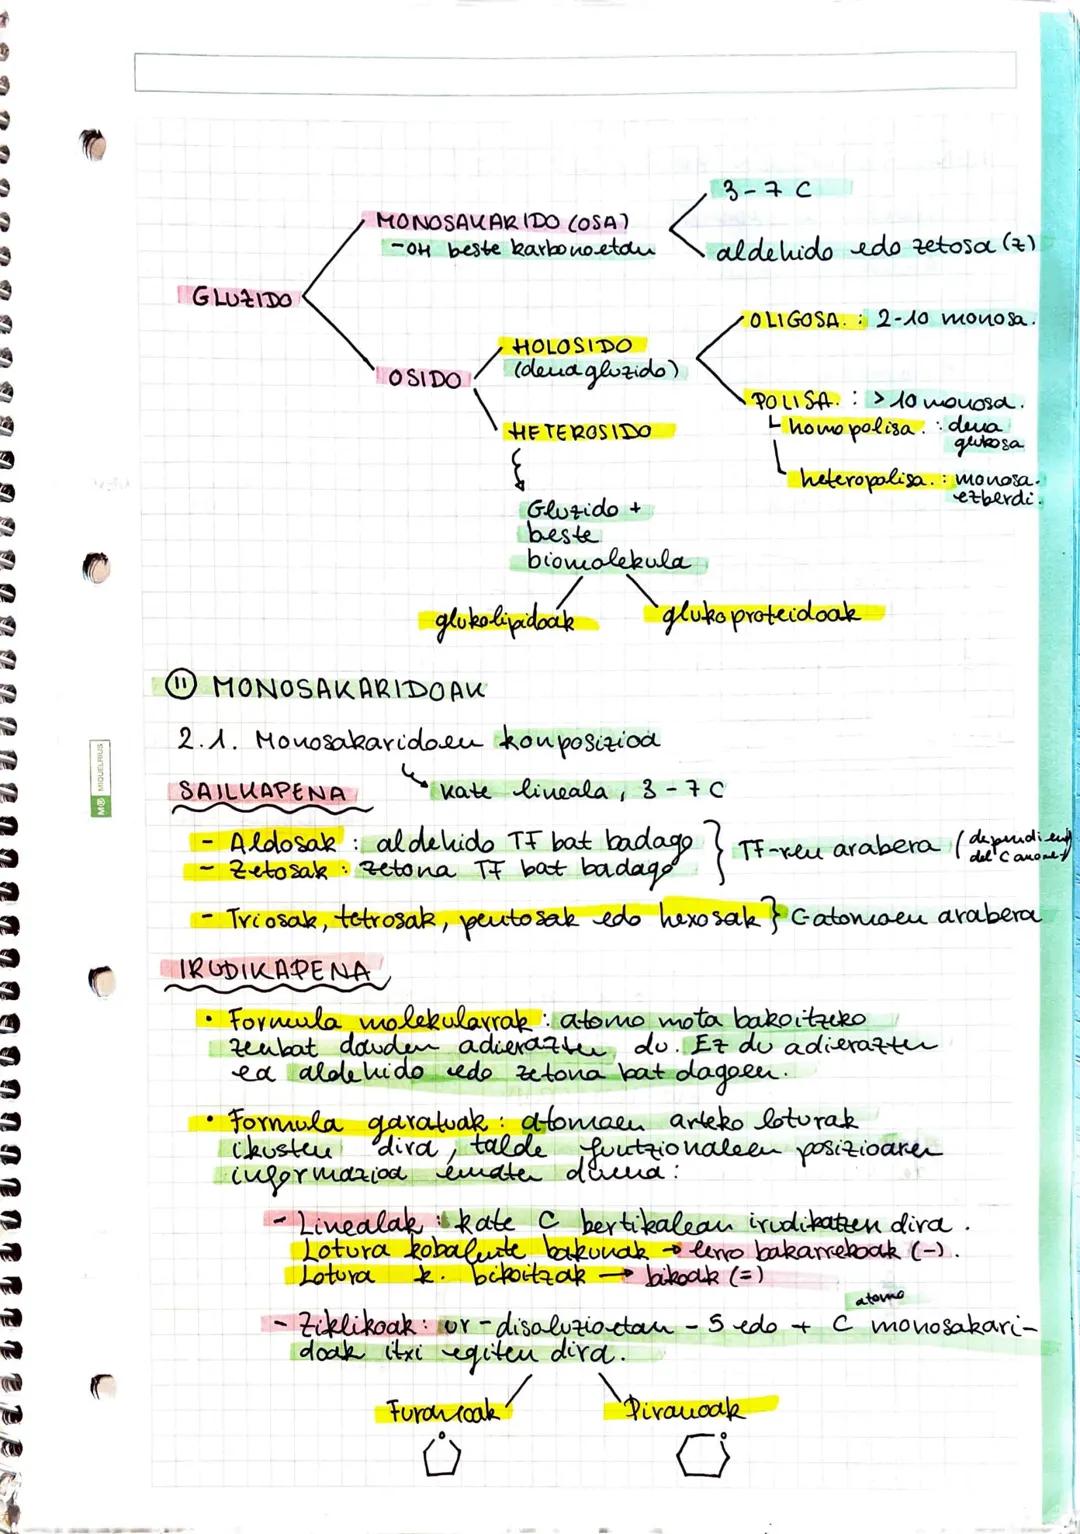 3-7 C
MONOSAKARIDO (OSA)
-OH beste karbonoetan
aldehido edo zetosa (z)
GLUZIDO
OLIGOSA. : 2-10 monosa.
HOLOSIDO
(dena gluzido)
OSIDO
POLISA. : > 10 monosa.
homopolisa. : dena
glukosa
HETEROSIDO
heteropolisa. : monosa.
ezberdi.
Gluzido +
beste
biomolekula
glukolipidoak
glukoproteidoak
II MONOSAKARIDOAK
2.1. Monosakaridoen konposizioa
kate lineala, 3-7 C
SAILKAPENA
- Aldosak : aldehido TF bat badago
- Zetosak : zetona TF bat badago
TF-ren arabera (dependiend
del C anomet)
- Triosak, tetrosak, pentosak edo hexosak } C atomoen arabera
IRUDIKAPENA
• Formula molekularrak : atomo mota bakoitzeko
zenbat dauden adierazten du. Ez du adierazten
ea aldehido edo zetona bat dagoen.
• Formula garatuak : atomoen arteko loturak
ikusten dira, talde funtzionaleen posizioaren
informazioa ematen duena :
- Linealak : kate C bertikalean irudikatzen dira.
Lotura kobalente bakunak → lerro bakarrekoak (-).
Lotura k. bikoitzak → bikoak (=)
atomo
- Ziklikoak : ur-disoluzioetan - 5 edo + C monosakari-
doak itxi egiten dira.
Furanoak
Piranoak
MIQUELRIUS